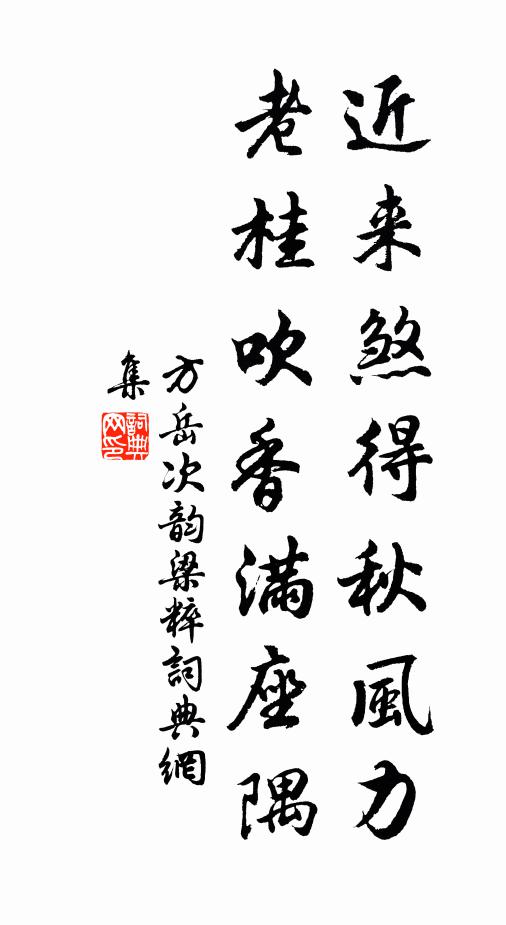 近来煞得秋風力
老桂吹香满座隅
方岳次韵梁粹詞典網
集
詞典网印